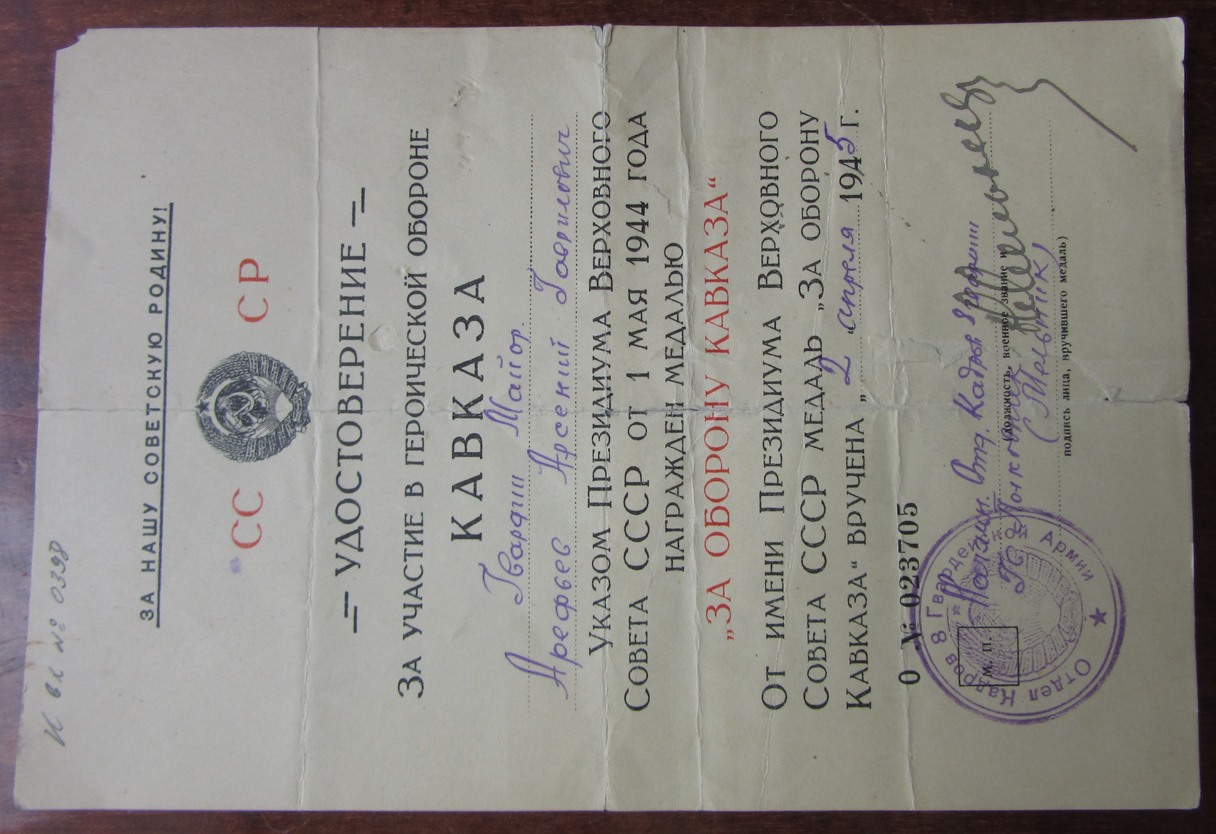 И вх № 0398
ЗА НАШУ СОВЕТСКУЮ РОДИНУ!
СС СР
УДОСТОВЕРЕНИЕ
ЗА УЧАСТИЕ В ГЕРОИЧЕСКОЙ ОБОРОНЕ
КАВКАЗА
Гвардии Майор
Арефьев Арсений Гаврилович
УКАЗОМ ПРЕЗИДИУМА ВЕРХОВНОГО
СОВЕТА СССР ОТ 1 МАЯ 1944 ГОДА
НАГРАЖДЕН МЕДАЛЬЮ
„ЗА ОБОРОНУ КАВКАЗА“
ОТ ИМЕНИ ПРЕЗИДИУМА ВЕРХОВНОГО
СОВЕТА СССР МЕДАЛЬ „ЗА ОБОРОНУ
КАВКАЗА“ ВРУЧЕНА „2 апреля 1945 г.
О № 023705
Начальн. Отд. Кадров 8 гвардии
(Должность, военное звание и
Гв. Полковник
(Мельник)
подпись лица, вручившего медаль)
М. П.
Отдел Кадров 8 Гвардейской Армии